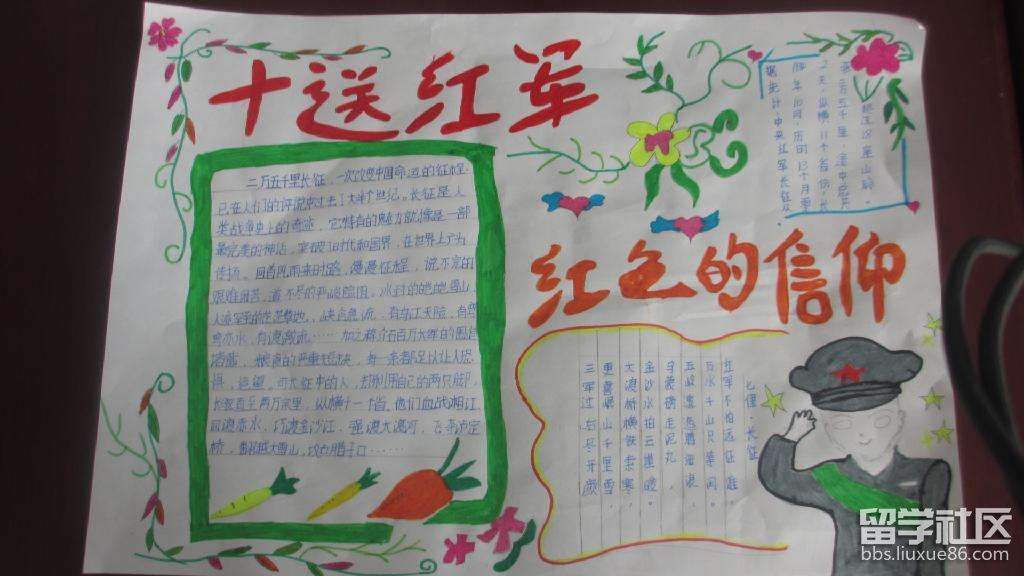 十送红军
二万五千里长征，一次改变中国命运的征程，
已在人们的评说中过去了大半个世纪。长征是人
类战争史上的奇迹，它特有的魅力就像是一部
最完美的神话，突破了时代和国界，在世界上广为
传扬。回首风雨来时路，漫漫征程，说不完的
艰难困苦，道不尽的
冰封的皑皑雪山，
人迹罕至的茫茫草地，
有乌江天险，有
赤水，有
……加之蒋介石百万大军的围追
堵截，
的严重
，每一条都足以让人恐
惧、绝望，可长征中的人，却利用自己的两只脚，
长驱直至两万余里，纵横十一个省。他们血战湘江，
四渡赤水，巧渡金沙江，强渡大渡河，飞夺泸定
桥，翻越
大雪山，攻占腊子口……
据统计，中央红军长征从
年10月，历时13个月零
2天，纵横11个省份，长
驱二万五千里，途中
红色的信仰
七律·长征
红军不怕远征难，
万水千山只等闲。
五岭逶迤腾细浪，
乌蒙磅礴走泥丸。
金沙水拍云崖暖，
大渡桥横铁索寒。
更喜岷山千里雪，
三军过后尽开颜。
留学社区
bbs.liuxue86.com